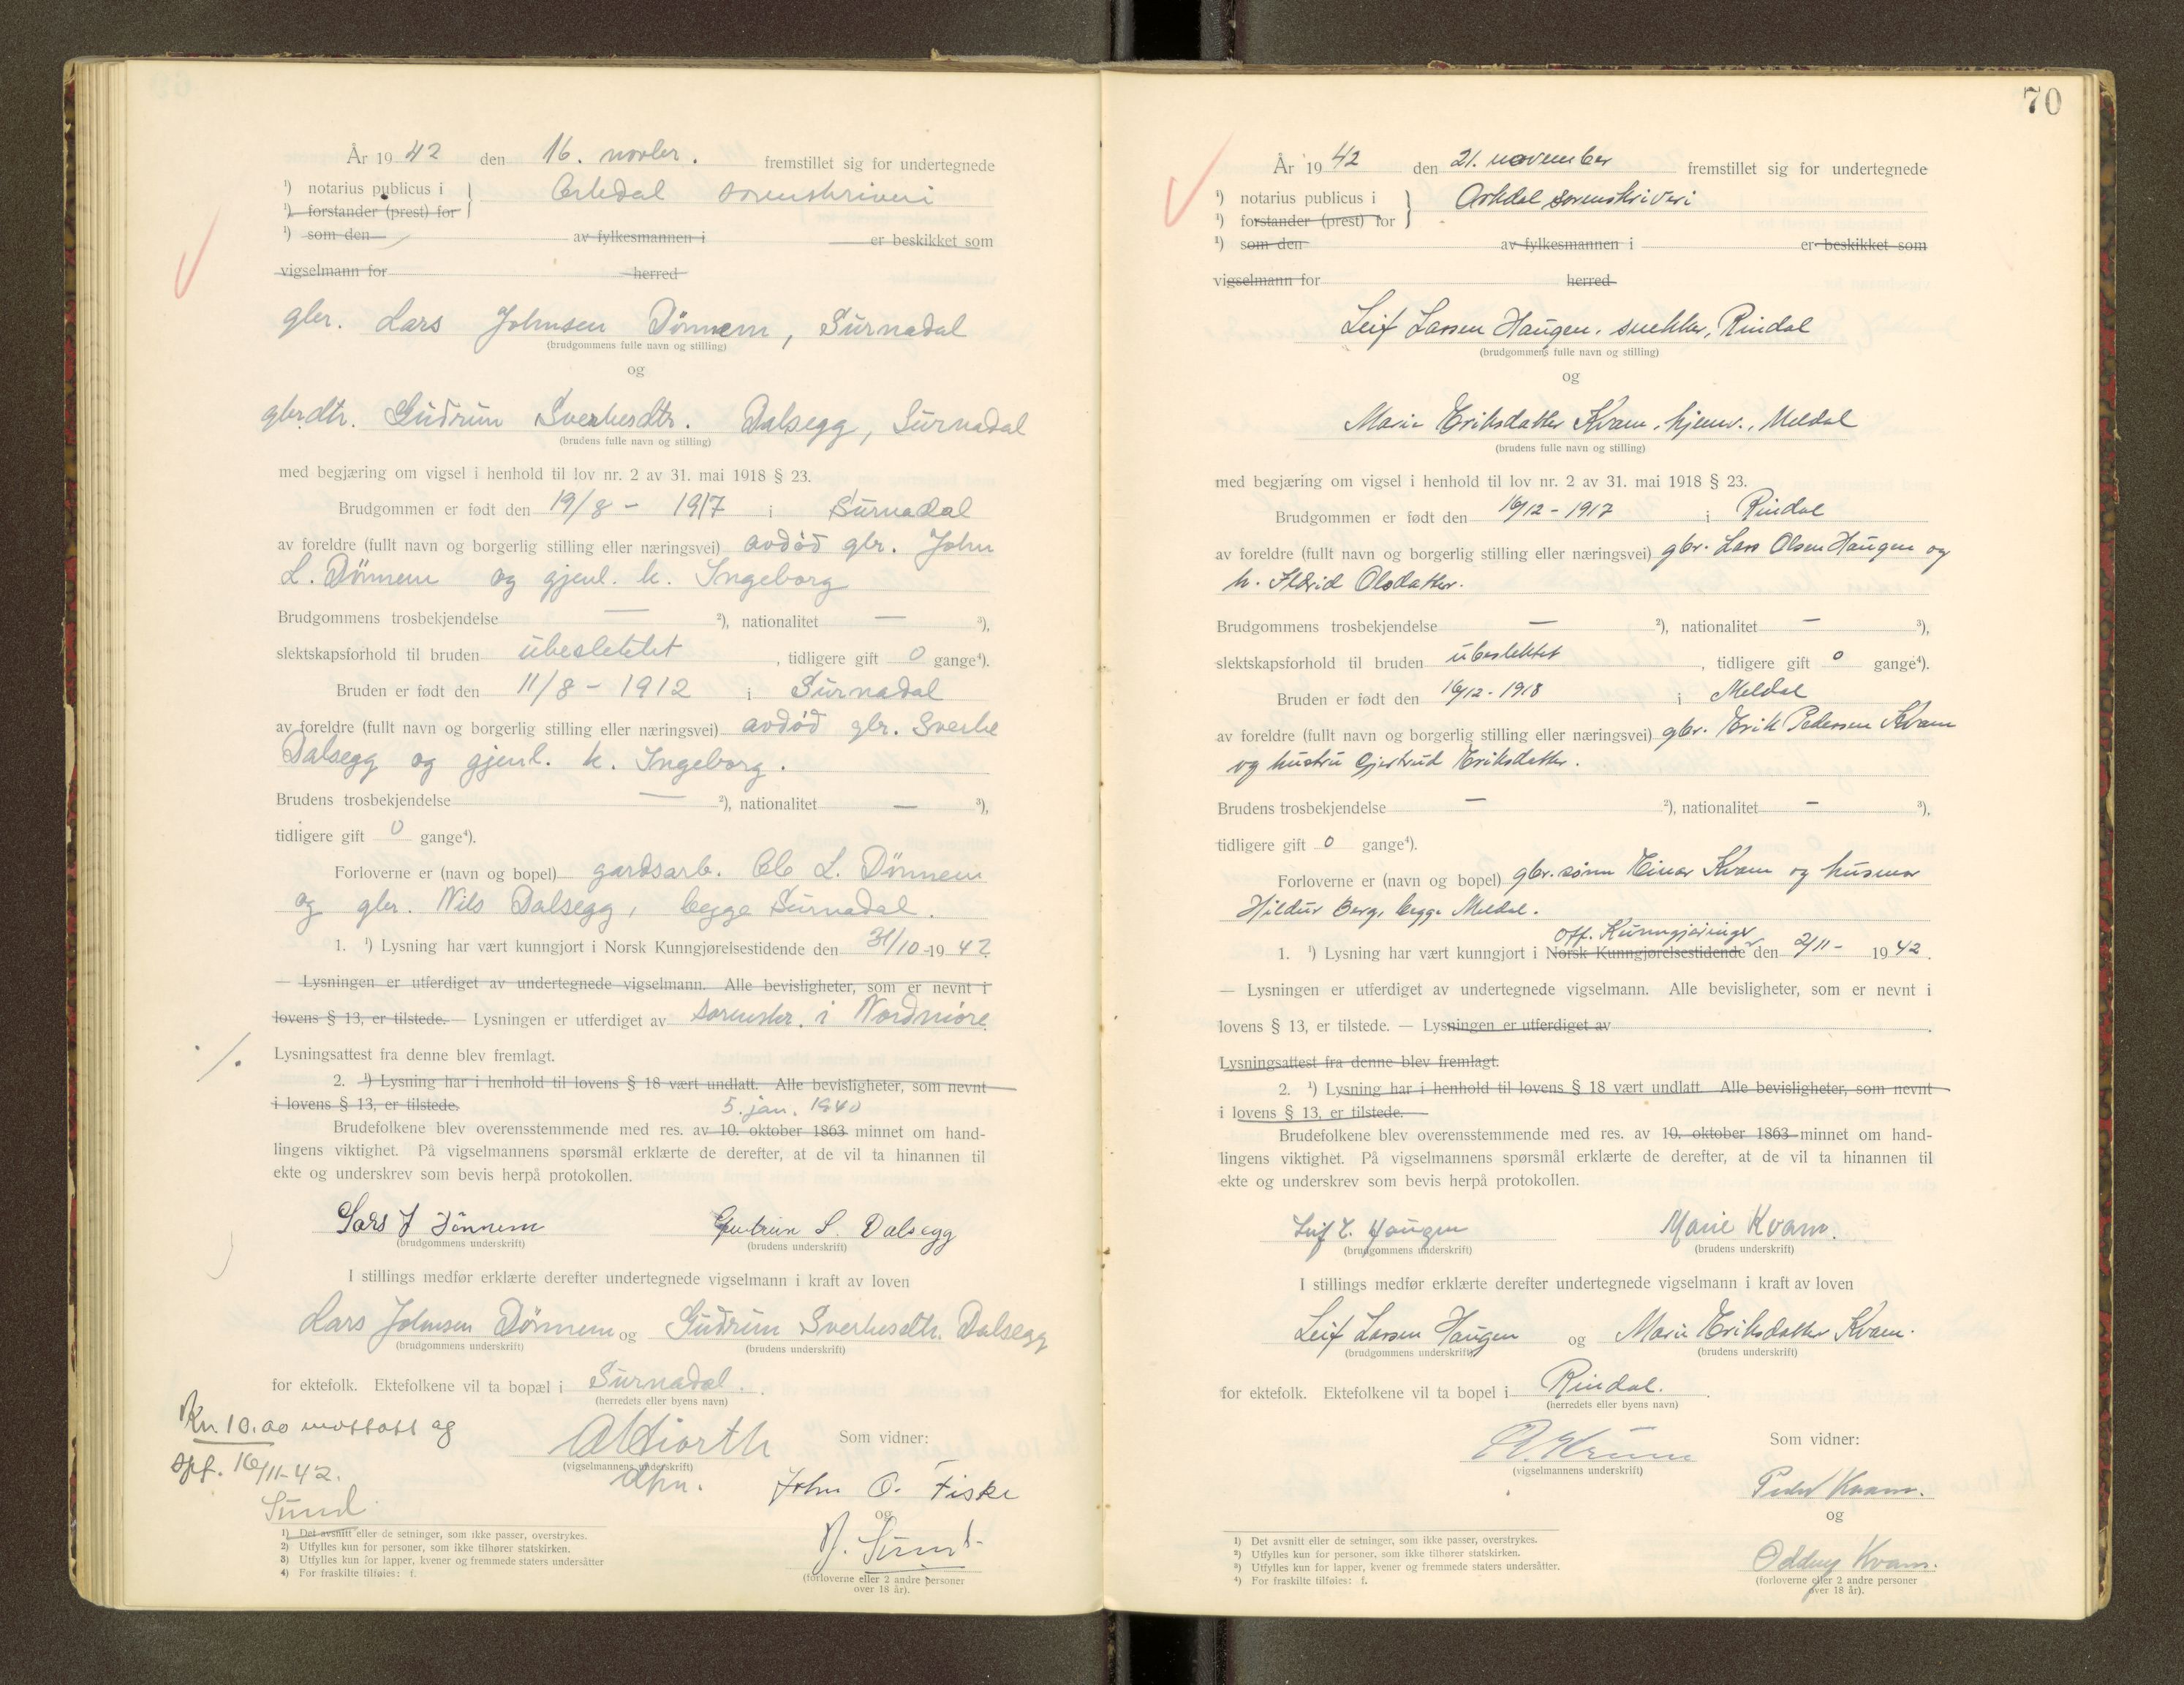 År 1942 den 16. novbr. fremstillet sig for undertegnede
¹) notarius publicus i } Orkedal sorenskriveri
¹) forstander (prest) for
¹) som den av fylkesmannen i er beskikket som
vigselmann for herred
gbr. Lars Johnsen Dönnem, Surnadal
(brudgommens fulle navn og stilling)
og
gbrdtr. Gudrun Sverkesdtr. Dalsegg, Surnadal
(brudens fulle navn og stilling)
med begjæring om vigsel i henhold til lov nr. 2 av 31. mai 1918 § 23.
Brudgommen er født den 19/8 - 1917 i Surnadal
av foreldre (fullt navn og borgerlig stilling eller næringsvei) avdød gbr. John
L. Dönnem og gjenl. k. Ingeborg
Brudgommens trosbekjendelse — ²), nationalitet — ³),
slektskapsforhold til bruden ubeslektet, tidligere gift 0 gange⁴).
Bruden er født den 11/8 - 1912 i Surnadal
av foreldre (fullt navn og borgerlig stilling eller næringsvei) avdød gbr. Sverke
Dalsegg og gjenl. k. Ingeborg.
Brudens trosbekjendelse — ²), nationalitet — ³),
tidligere gift 0 gange⁴).
Forloverne er (navn og bopel) gardsarb. Ole L. Dönnem
og gbr. Nils Dalsegg, begge Surnadal.
1. ¹) Lysning har vært kunngjort i Norsk Kunngjørelsestidende den 31/10-1942
— Lysningen er utferdiget av undertegnede vigselmann. Alle bevisligheter, som er nevnt i
lovens § 13, er tilstede. — Lysningen er utferdiget av sorenskr. i Nordmöre
Lysningsattest fra denne blev fremlagt.
2. ¹) Lysning har i henhold til lovens § 18 vært undlatt. Alle bevisligheter, som nevnt
i lovens § 13, er tilstede. 5. jan. 1940
Brudefolkene blev overensstemmende med res. av 10. oktober 1863 minnet om hand-
lingens viktighet. På vigselmannens spørsmål erklærte de derefter, at de vil ta hinannen til
ekte og underskrev som bevis herpå protokollen.
Lars J Dönnem Gudrun S. Dalsegg
(brudgommens underskrift) (brudens underskrift)
I stillings medfør erklærte derefter undertegnede vigselmann i kraft av loven
Lars Johnsen Dönnem og Gudrun Sverkesdtr. Dalsegg
(brudgommens underskrift) (brudens underskrift)
for ektefolk. Ektefolkene vil ta bopæl i Surnadal.
(herredets eller byens navn)
Kr. 10.00 mottatt og
opf. 16/11-42.
Sund
Som vidner:
(vigselmannens underskrift)
John O. Fiske
og
Sund
(forloverne eller 2 andre personer
over 18 år).
¹) Det avsnitt eller de setninger, som ikke passer, overstrykes.
²) Utfylles kun for personer, som ikke tilhører statskirken.
³) Utfylles kun for lapper, kvener og fremmede staters undersåtter
⁴) For fraskilte tilføies: f.
70
År 1942 den 21. november fremstillet sig for undertegnede
¹) notarius publicus i } Orkdal sorenskriveri
¹) forstander (prest) for
¹) som den av fylkesmannen i er beskikket som
vigselmann for herred
Leif Larsen Haugen, snekker, Rindal
(brudgommens fulle navn og stilling)
og
Marie Eriksdatter Kvam, hjemv., Meldal
(brudens fulle navn og stilling)
med begjæring om vigsel i henhold til lov nr. 2 av 31. mai 1918 § 23.
Brudgommen er født den 16/12 - 1917 i Rindal
av foreldre (fullt navn og borgerlig stilling eller næringsvei) gbr. Lars Olsen Haugen og
h. Ildrid Olsdatter.
Brudgommens trosbekjendelse — ²), nationalitet — ³),
slektskapsforhold til bruden ubeslektet, tidligere gift 0 gange⁴).
Bruden er født den 16/12 - 1918 i Meldal
av foreldre (fullt navn og borgerlig stilling eller næringsvei) gbr. Erik Pedersen Kvam
og hustru Gjertrud Eriksdatter.
Brudens trosbekjendelse — ²), nationalitet — ³),
tidligere gift 0 gange⁴).
Forloverne er (navn og bopel) gbr. sønn Einar Kvam og husmor
Hildur Berg, begge Meldal.
off. Kunngjøringer
1. ¹) Lysning har vært kunngjort i Norsk Kunngjørelsestidende den 2/11 - 1942.
— Lysningen er utferdiget av undertegnede vigselmann. Alle bevisligheter, som er nevnt i
lovens § 13, er tilstede. — Lysningen er utferdiget av
Lysningsattest fra denne blev fremlagt.
2. ¹) Lysning har i henhold til lovens § 18 vært undlatt Alle bevisligheter, som nevnt
i lovens § 13, er tilstede.
Brudefolkene blev overensstemmende med res. av 10. oktober 1863 minnet om hand-
lingens viktighet. På vigselmannens spørsmål erklærte de derefter, at de vil ta hinannen til
ekte og underskrev som bevis herpå protokollen.
Leif L. Haugen Marie Kvam.
(brudgommens underskrift) (brudens underskrift)
I stillings medfør erklærte derefter undertegnede vigselmann i kraft av loven
Leif Larsen Haugen og Marie Eriksdatter Kvam.
(brudgommens underskrift) (brudens underskrift)
for ektefolk. Ektefolkene vil ta bopel i Rindal.
(herredets eller byens navn)
Som vidner:
(vigselmannens underskrift)
Peder Kvam.
og
Oddny Kvam.
(forloverne eller 2 andre personer
over 18 år).
¹) Det avsnitt eller de setninger, som ikke passer, overstrykes.
²) Utfylles kun for personer, som ikke tilhører statskirken.
³) Utfylles kun for lapper, kvener og fremmede staters undersåtter.
⁴) For fraskilte tilføies: f.